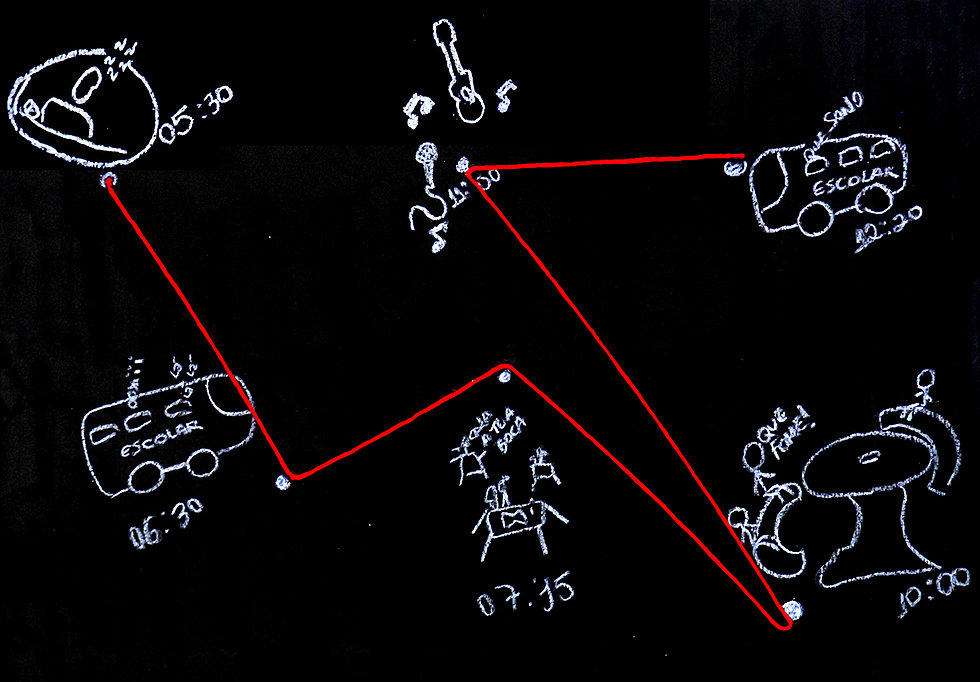 05:30
QUE SONO
ESCOLAR
12:20
ESCOLAR
06:30
A TUA
BOCA
07:15
QUE
FOME!
10:00